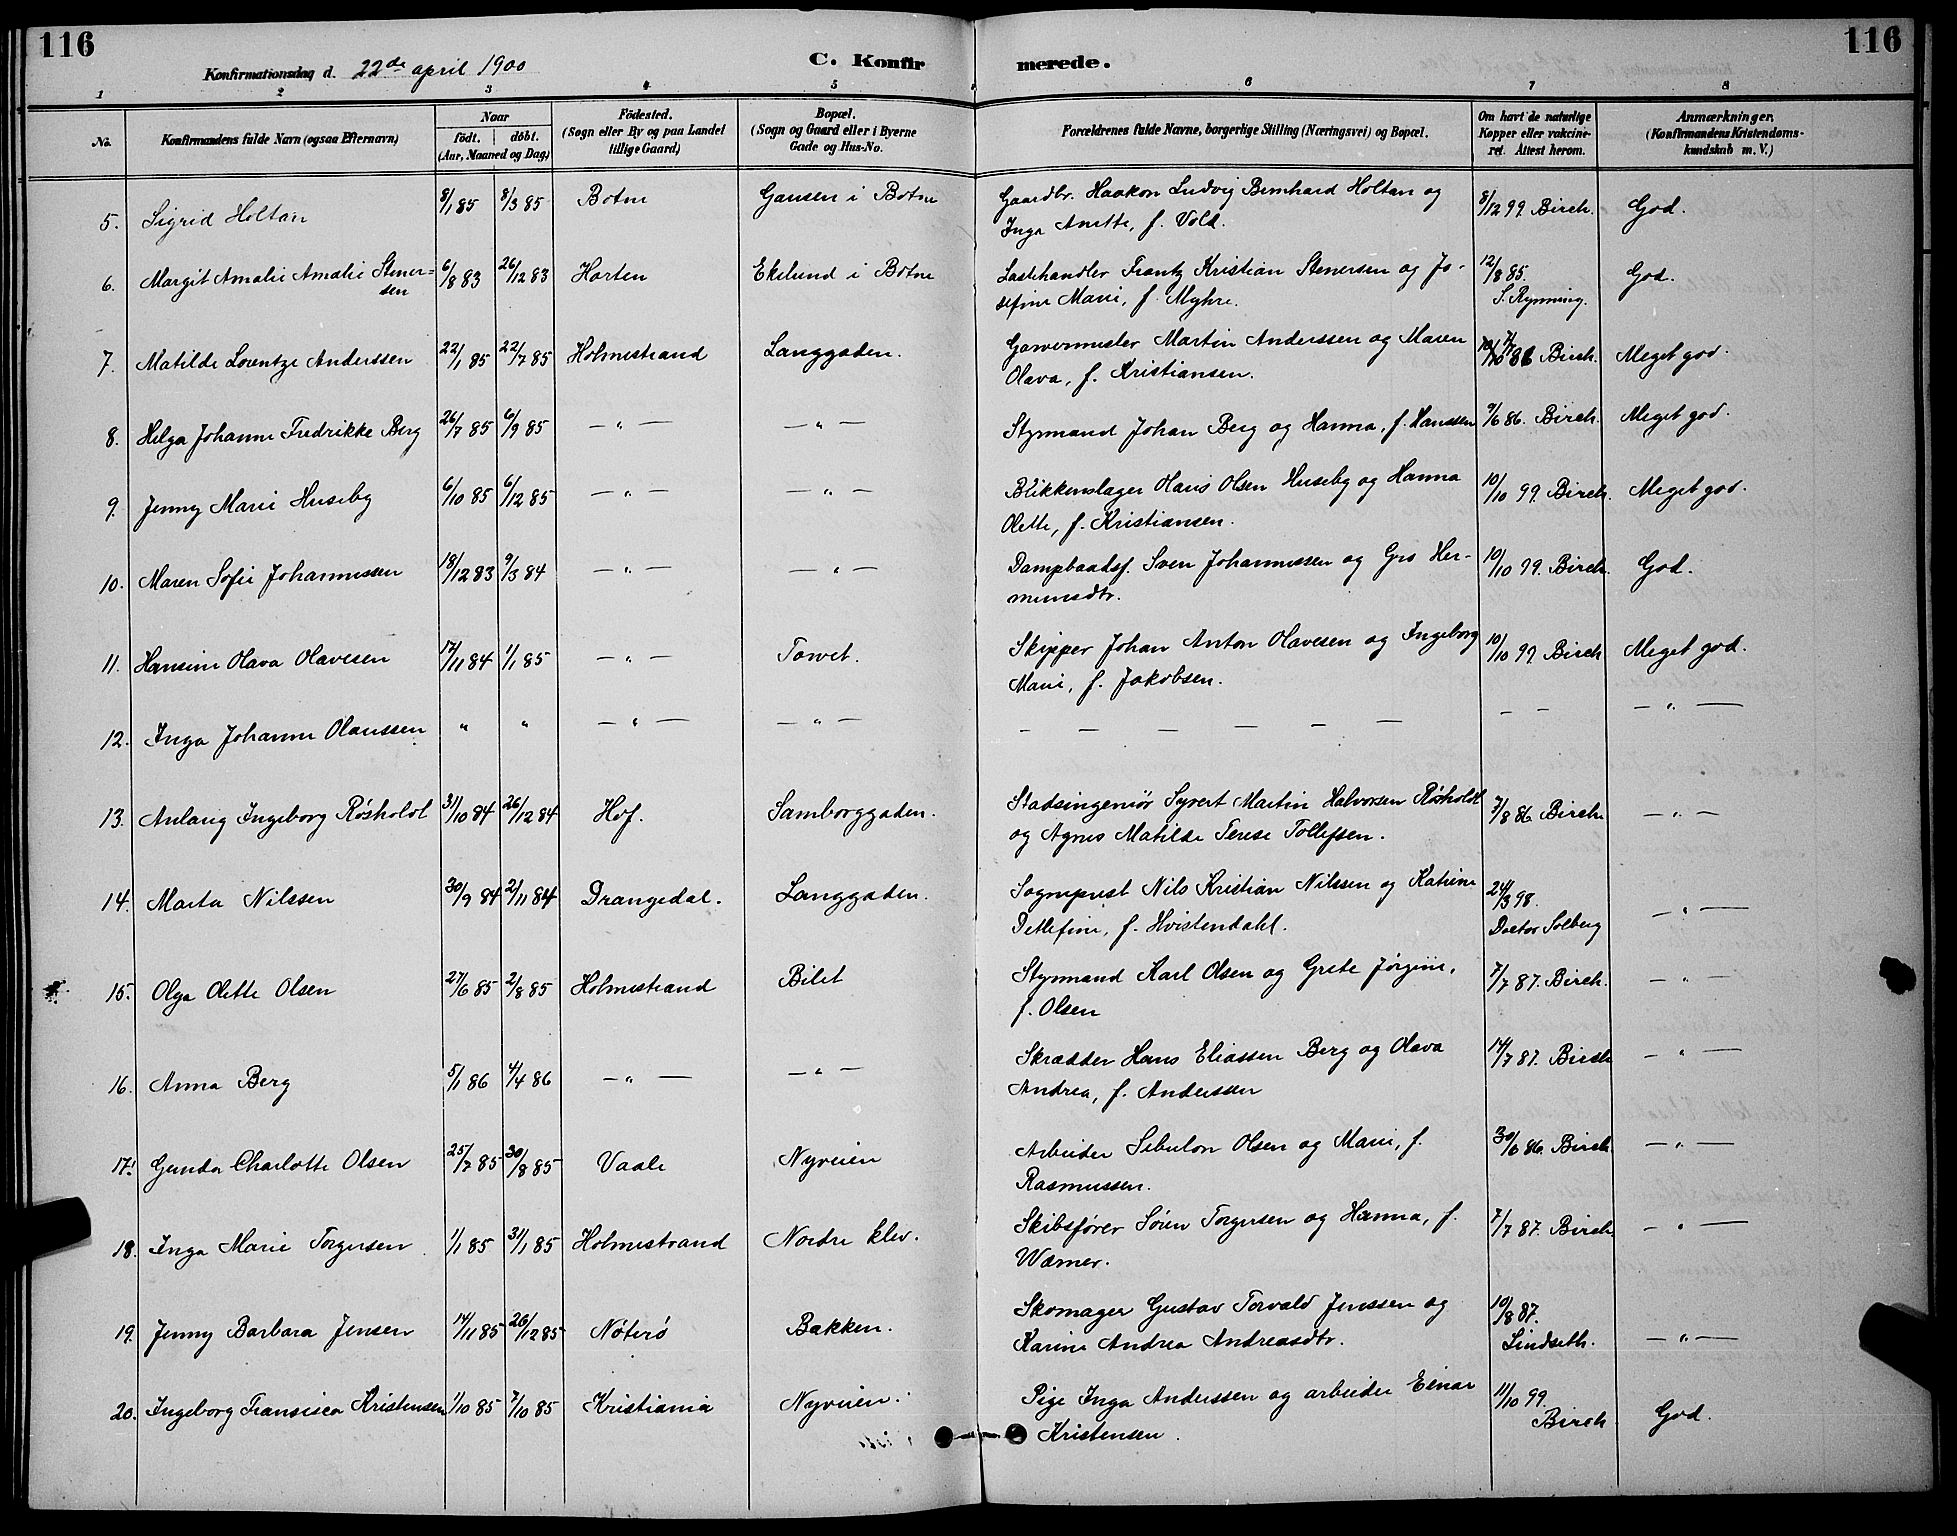 116
116
Konfirmationsdag d. 22de april 1900
C. Konfirmerede.
1 2 3 4 5 6 7 8
No.
Konfirmandens fulde Navn (ogsaa Efternavn)
Naar
født. døbt.
(Aar, Maaned og Dag)
Fødested.
(Sogn eller By og paa Landet
tillige Gaard)
Bopæl.
(Sogn og Gaard eller i Byerne
Gade og Hus-No.
Forældrenes fulde Navne, borgerlige Stilling (Næringsvei) og Bopæl.
Om havt de naturlige
Kopper eller vakcine-
ret. Attest herom.
Anmærkninger.
(Konfirmandens Kristendoms-
kundskab m. V.)
5. Sigrid Holtan 8/1 85 8/3 85 Botne Gausen i Botne Gaardbr. Haakon Ludvig Bernhard Holtan og 8/12 99 Birch. God.
Inga Anette, f. Vold.
6. Margit Amalie Amalie Stener= 6/8 83 26/12 83 Horten Ekelund i Botne Lasthandler Frantz Kristian Stenersen og Jo- 12/8 85. God.
sen sefine Marie, f. Myhre. S. Rynning.
7. Matilde Lorentze Anderssen 22/1 85 22/7 85 Holmestrand Langgaden. Garvermester Martin Anderssen og Maren 86 Birch Meget god.
Olava, f. Kristiansen.
8. Helga Johanne Fredrikke Berg 26/7 85 6/9 85 — " — — " — Styrmand Johan Berg og Hanna, f. Hanssen 9/6 86. Birch. Meget god.
9. Jenny Marie Huseby 6/10 85 6/12 85 — " — — " — Blikkenslager Hans Olsen Huseby og Hanna 10/10 99. Birch. Meget god.
Olette, f. Kristiansen.
10. Maren Sofie Johannessen 18/12 83 9/3 84 — " — — " — Dampbaadsf. Sven Johannessen og Gro Her- 10/10 99. Birch. God.
mansdtr.
11. Hansine Olava Olavesen 17/11 84 1/1 85 — " — Torvet. Skipper Johan Anton Olavesen og Ingeborg 10/10 99 Birch Meget god.
Marie, f. Jakobsen.
12. Inga Johanne Olaussen " " — " — — " — — — — — — — — — — " —
13. Anlaug Ingeborg Røsholdt 31/10 84 26/12 84 Hof. Samborggaden. Stadsingeniør Syvert Martin Halvorsen Røsholdt 7/8 86 Birch — " —
og Agnes Matilde Terese Tollefsen.
14. Marta Nilssen 30/9 84 2/11 84 Drangedal. Langgaden. Sogneprest Nils Kristian Nilssen og Katrine 24/3 98. — " —
Detlefine, f. Hvistendahl. Doctor Solberg
15. Olga Olette Olsen 27/6 85 2/8 85 Holmestrand Bilet Styrmand Karl Olsen og Grete Jørgine, 7/7 87. Birch. — " —
f. Olsen
16. Anna Berg 5/1 86 4/4 86 — " — — " — Skrædder Hans Eliassen Berg og Olava 14/7 87. Birch — " —
Andrea, f. Anderssen
17. Gunda Charlotte Olsen 25/7 85 30/8 85 Vaale Nyveien Arbeider Sebulon Olsen og Marie, f. 30/6 86. Birch — " —
Rasmussen.
18. Inga Marie Torgersen 1/1 85 31/1 85 Holmestrand Nordre klev. Skibsfører Søren Torgersen og Hanna, f. 7/7 87. Birch — " —
Wærner.
19. Jenny Barbara Jensen 14/11 85 26/12 85 Nøterø Bakken. Skomager Gustav Torvald Jenssen og 10/8 87. — " —
Karine Andrea Andreasdtr. Lindseth.
20. Ingeborg Fransisca Kristensen 1/10 85 7/10 85 Kristiania Nyveien. Pige Inga Anderssen og arbeider Einar 11/10 99. God.
Kristensen. Birch